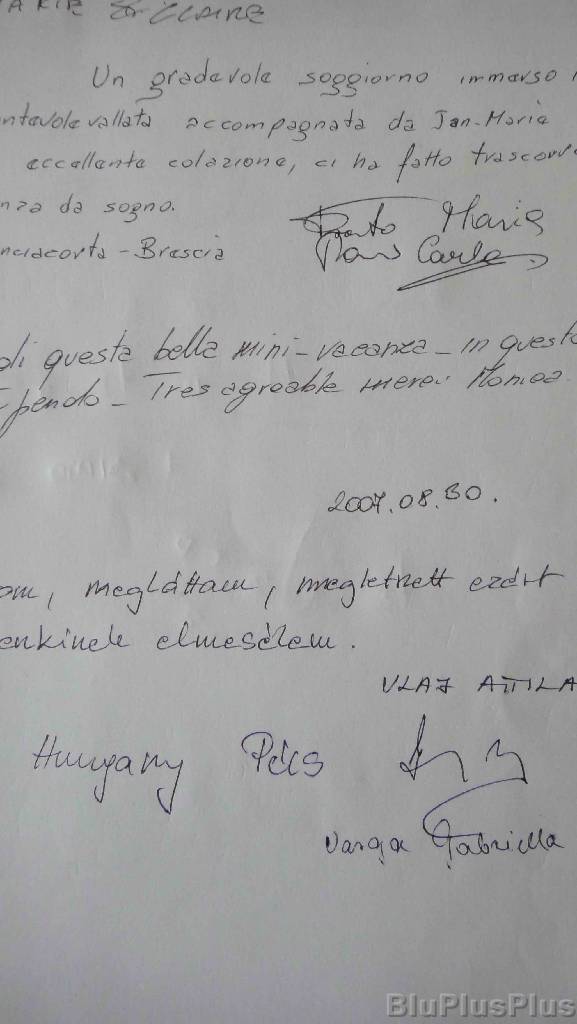 & CLAIRE
Un gradevole soggiorno immerso
ntevole vallata accompagnata da Jan-Maria
eccellente colazione, ci ha fatto trascorre
nza da sogno.
nciacorta - Brescia
Maria
Carla
di questa bella mini-vacanza - in questo
pendo - Tres agreable merci Monica
2007.08.30.
am, megláttam, megtetszett ezért
enkinek elmesélem.
VLAJ ATTILA
Hungary Pécs
Varga Gabriella
BluPlusPlus